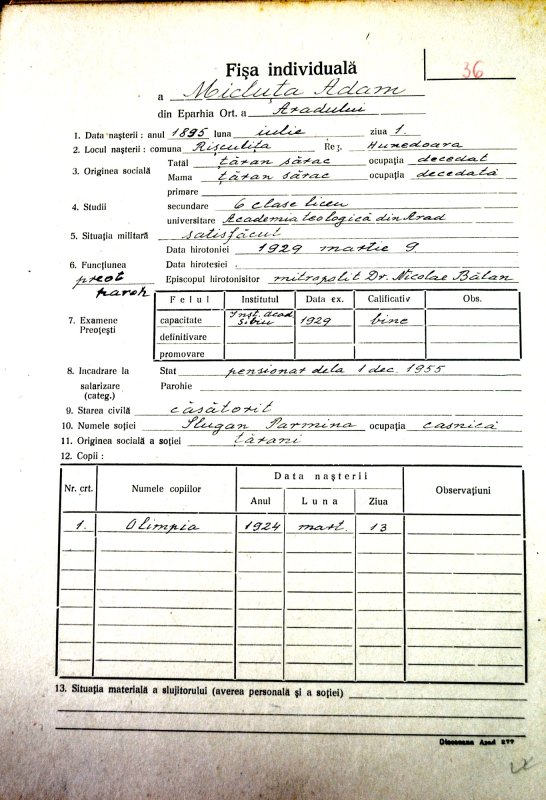 36
Fișa individuală
a Micluța Adam
din Eparhia Ort. a Aradului
1. Data nașterii : anul 1895 luna iulie ziua 1.
2. Locul nașterii : comuna Rișculița Reg. Hunedoara
3. Originea socială Tatăl țăran sărac ocupația decedat
Mama țăran sărac ocupația decedată
primare
4. Studii secundare 6 clase liceu
universitare Academia teologică din Arad
5. Situația militară satisfăcut
Data hirotoniei 1929 martie 9
6. Funcțiunea Data hirotesiei
preot paroh Episcopul hirotonisitor mitropolit Dr. Nicolae Bălan
Felul Institutul Data ex. Calificativ Obs.
7. Examene Preoțești capacitate Inst. acad Sibiu 1929 bine
definitivare
promovare
8. Incadrare la Stat pensionar dela 1 dec. 1955
salarizare Parohie
(categ.)
9. Starea civilă căsătorit
10. Numele soției Slugan Parmina ocupația casnică
11. Originea socială a soției țărani
12. Copii :
Data nașterii
Nr. crt. Numele copiilor Anul Luna Ziua Observațiuni
1. Olimpia 1924 mart. 13
13. Situația materială a slujitorului (averea personală și a soției)
Diecezana Arad 277